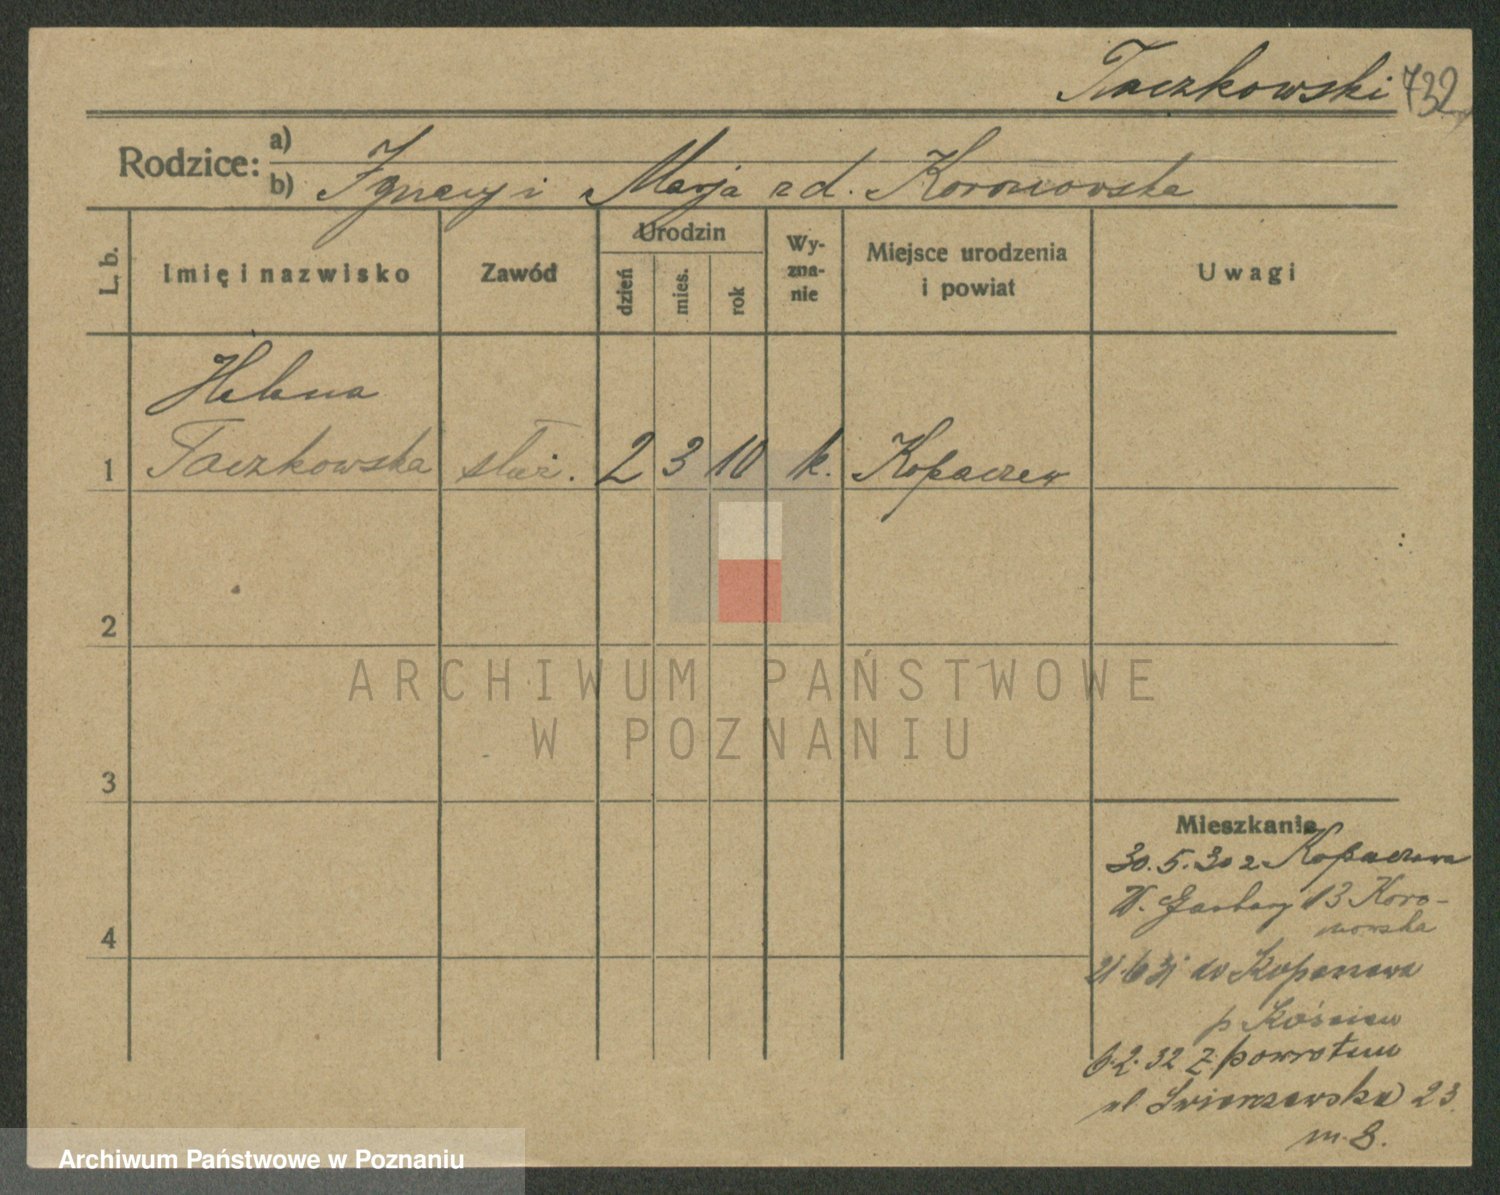 Taczkowski 732
Rodzice: a)
b) Ignacy i Marja z d. Koronowska
L. b.
Imię i nazwisko
Zawód
Urodzin
dzień
mies.
rok
Wy-
zna-
nie
Miejsce urodzenia
i powiat
Uwagi
Helena
1 Taczkowska służ. 2 3 10 k. Kopaczew
2
3
4
Mieszkanie
30.5.30 z Kopaczewa
W. Garbary 13 Koro-
nowska
21.6.31 do
p. Kościan
6.2.32 z powrotem
ul 23
m. 8.
ARCHIWUM PAŃSTWOWE
W POZNANIU
Archiwum Państwowe w Poznaniu